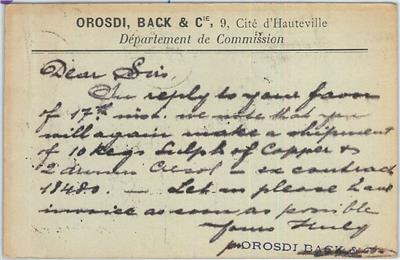 OROSDI, BACK & Cie, 9, Cité d'Hauteville
Département de Commission
Dear Sirs,
In reply to your favor
of 17th inst. we note that you
will again make a shipment
of 10 kegs Sulph of Copper &
2 drums Cresol - ex contract
18480 - Let us please have
invoice as soon as possible
Yours truly
OROSDI BACK